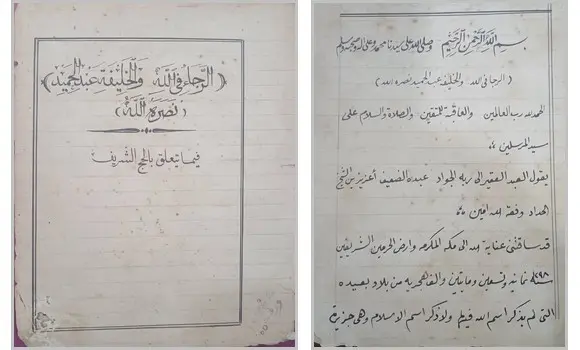 (الرجاء في الله والخليفة عبد الحميد)
(نصره الله)
فيما يتعلق بالحج الشريف
بسم الله الرحمن الرحيم وصلى الله على سيدنا محمد وعلى آله وصحبه وسلم
(الرجا في الله والخليفة عبد الحميد نصره الله)
الحمد لله رب العالمين والعاقبة للمتقين والصلاة والسلام على
سيد المرسلين
يقول العبد الفقير الى ربه الجواد عبده الضعيف أعزيز بن الشيخ
الحداد وفقه الله امين
قد ساقتني عناية الله الى مكة المكرمه وارض الحرمين الشريفين
سنة ١٢٩٨ ثمانية وتسعين ومايتين والف هجريه من بلاد بعيده
التى لم يذكر اسم الله فيها ولا ذكر اسم الاسلام وهى جزيرة